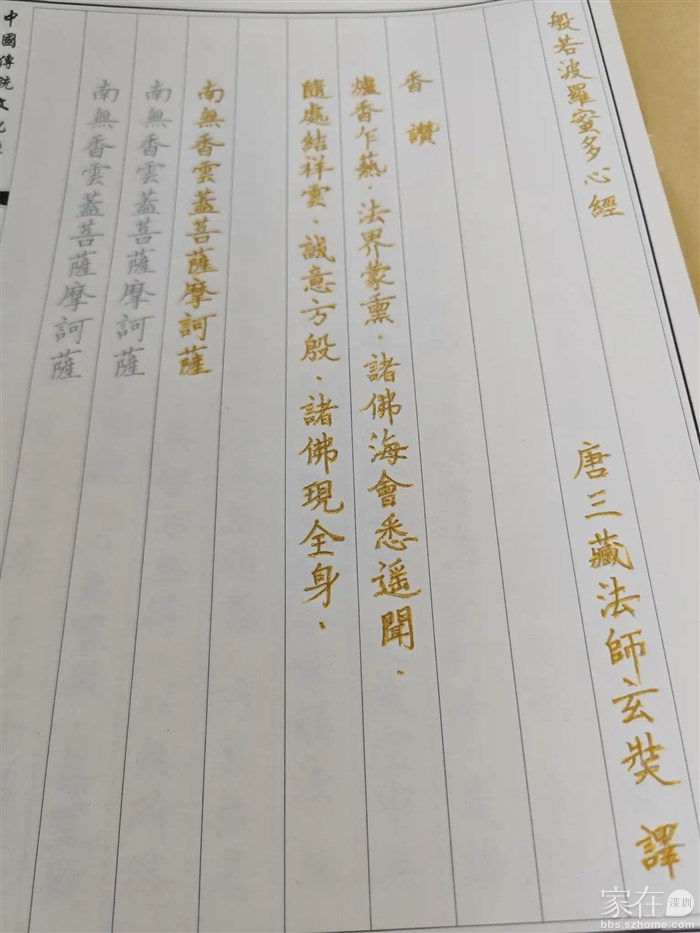 般若波羅蜜多心經
唐三藏法師玄奘 譯
香讚
爐香乍爇．法界蒙熏．諸佛海會悉遥聞．
隨處結祥雲．誠意方殷．諸佛現全身．
南無香雲蓋菩薩摩訶薩
南無香雲蓋菩薩摩訶薩
南無香雲蓋菩薩摩訶薩
中國傳統文化
家在深圳
bbs.szhome.com